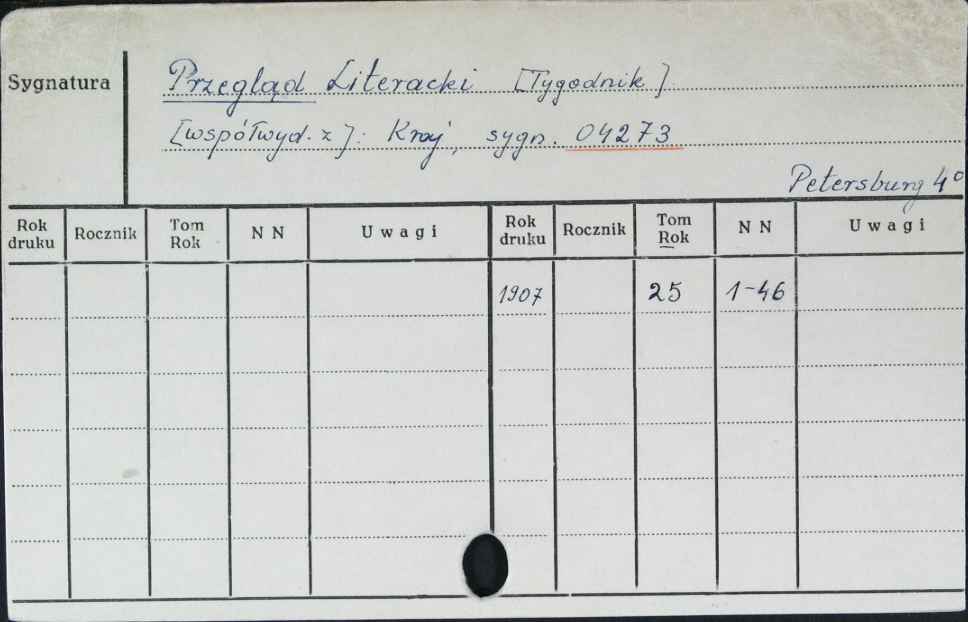 Sygnatura
Przegląd Literacki [Tygodnik]
[współwyd. z]: Kraj, sygn. 04273
Petersburg 4°
Rok druku Rocznik Tom Rok NN Uwagi Rok druku Rocznik Tom Rok NN Uwagi
1907 25 1-46